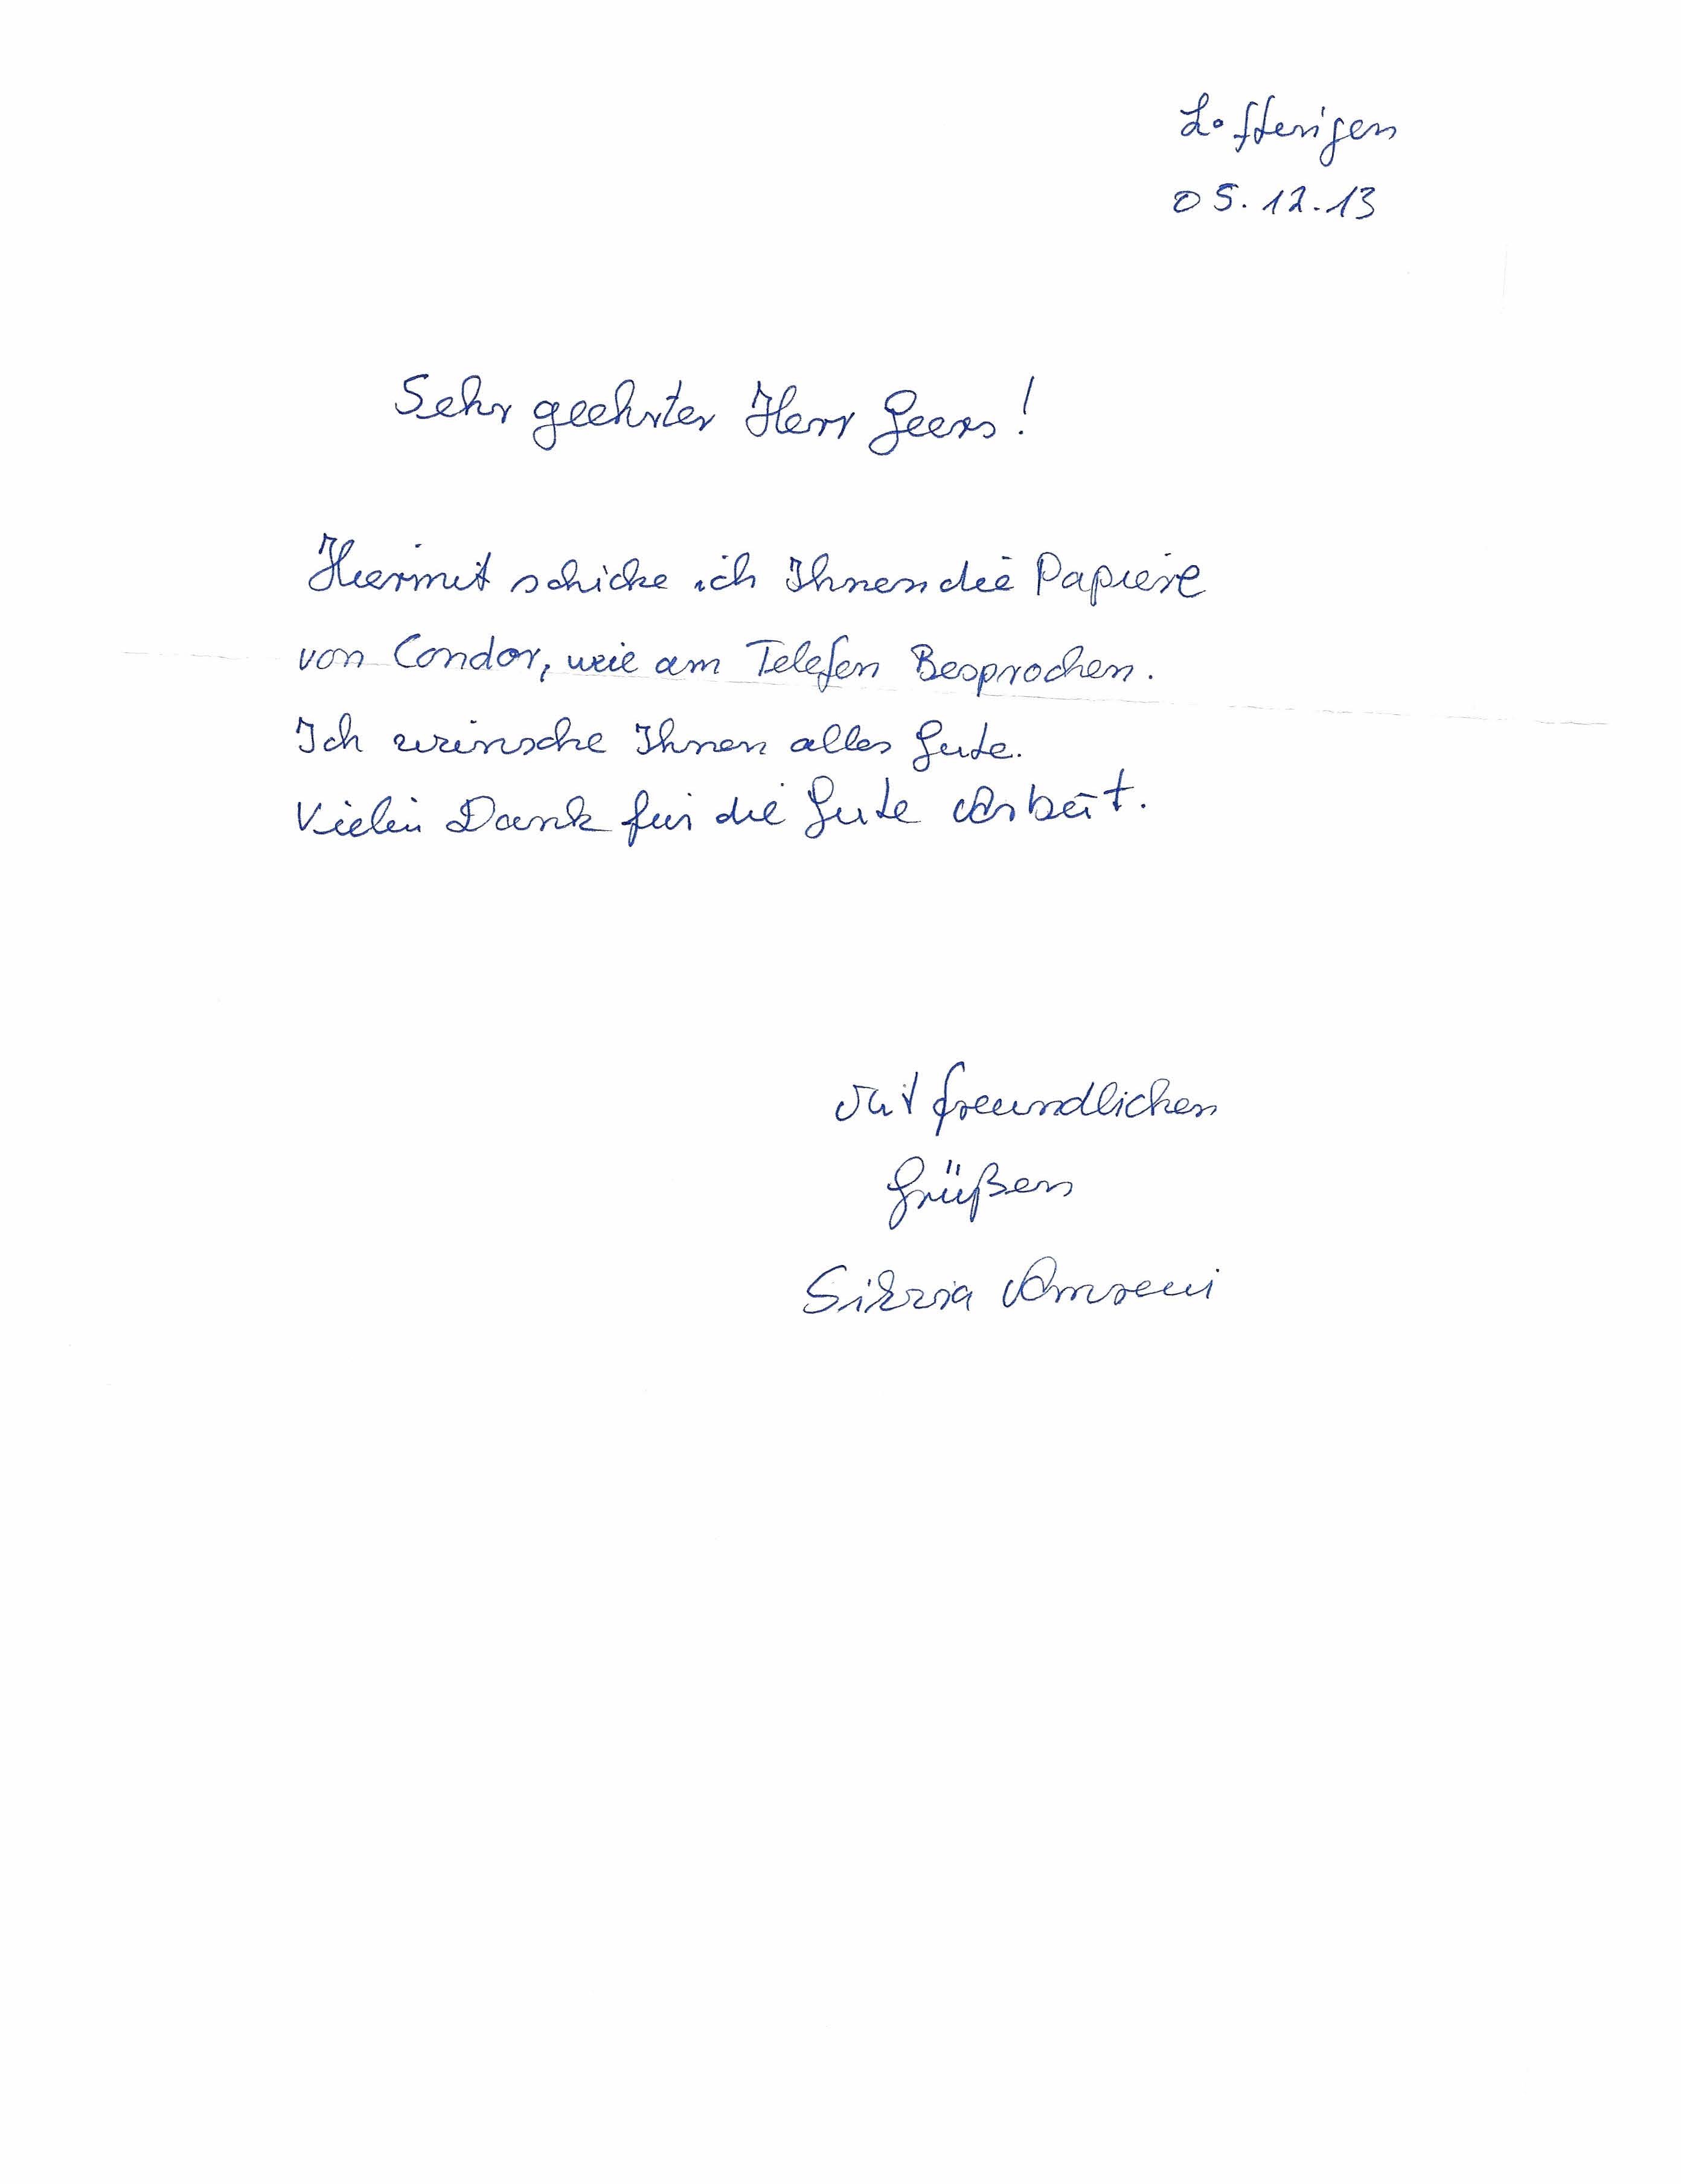 05.12.13
Sehr geehrter Herr Geers!
Hiermit schicke ich Ihnen die Papiere
von Condor, wie am Telefon Besprochen.
Ich wünsche Ihnen alles Gute.
Vielen Dank für die Gute Arbeit.
Mit freundlichen
Grüßen